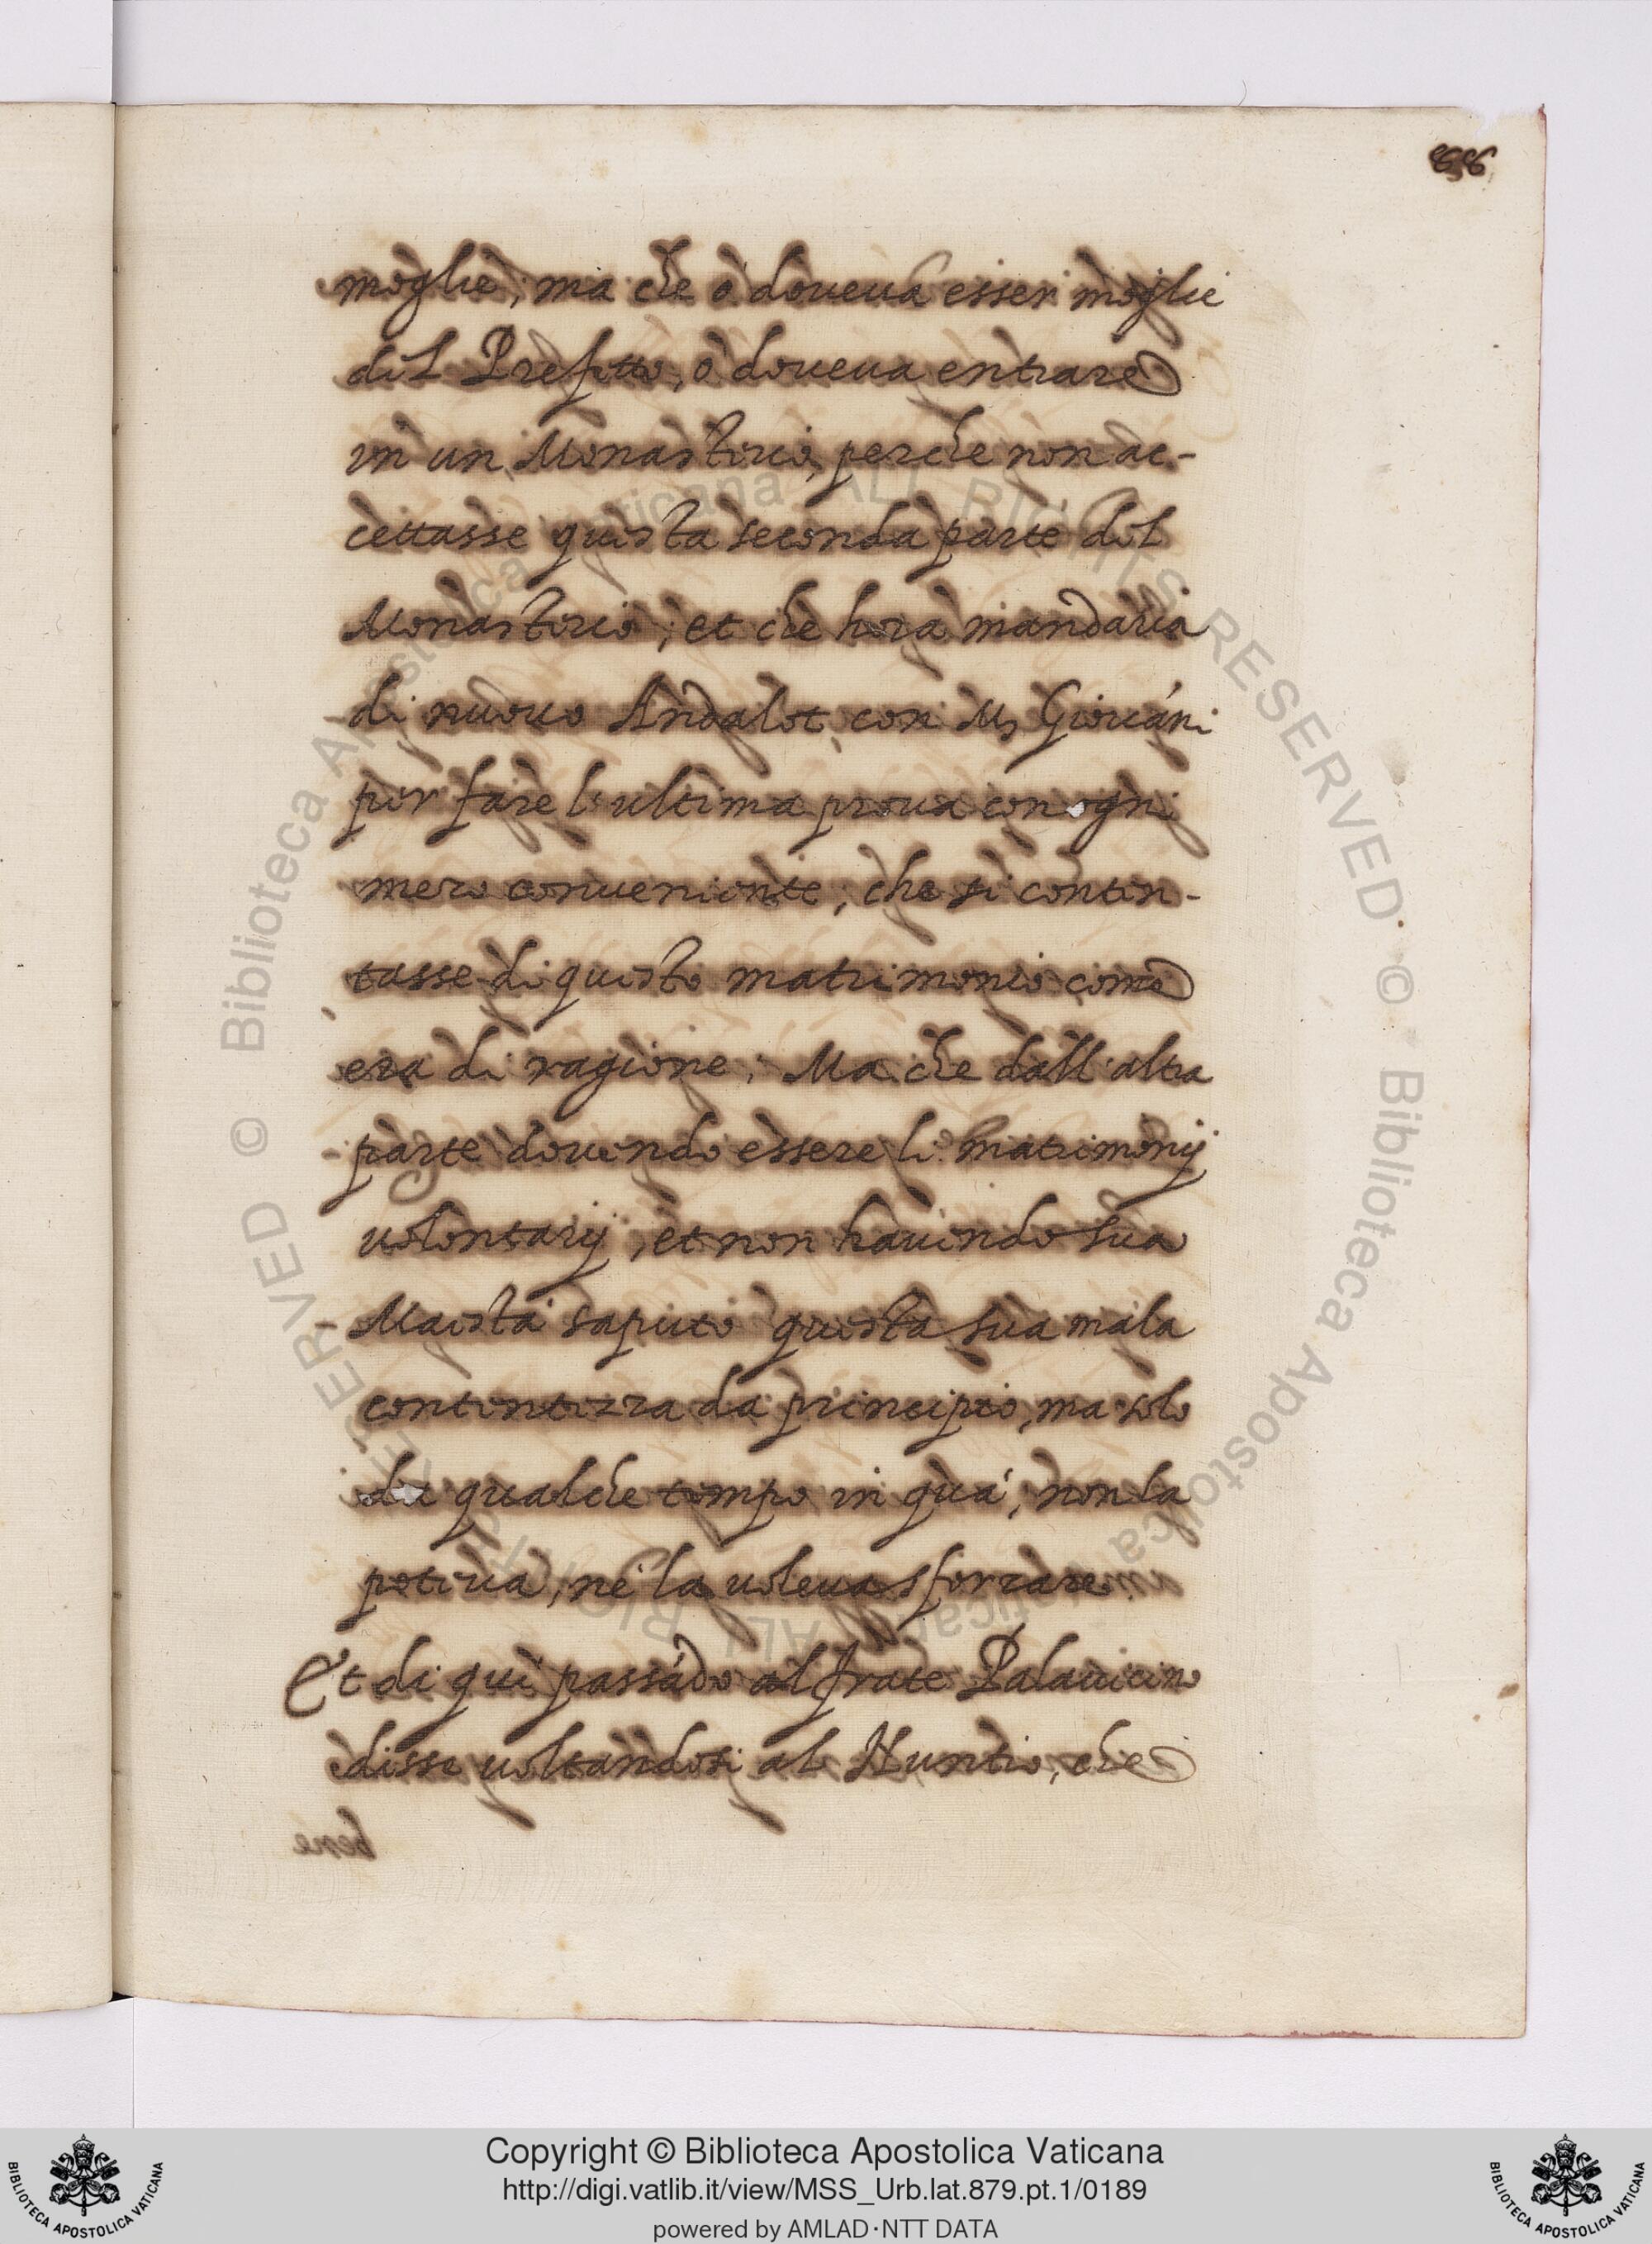 88
moglie; ma che ò doueua esser moglie
del Prefetto, ò doueua entrare
in un Monasterio, perche non ac-
cettasse questa seconda parte del
Monasterio; et che hora mandaria
di nuouo Andalot, con Mʳ Giouáni
per fare l'ultima proua con ogni
mezo conueniente, che si conten-
tasse di questo matrimonio come
era di ragione; Ma che dall'altra
parte douendo essere li matrimonij
uolontarij, et non hauendo sua
Maestà saputo questa sua mala
contentezza da principio, ma solo
da qualche tempo in quà, non la
poteua, né la uoleua sforzare
Et di quì passádo al frate Palauicino
disse uoltandosi al Nuntio, che
bene
Copyright © Biblioteca Apostolica Vaticana
http://digi.vatlib.it/view/MSS_Urb.lat.879.pt.1/0189
powered by AMLAD·NTT DATA
BIBLIOTECA APOSTOLICA VATICANA
BIBLIOTECA APOSTOLICA VATICANA
© Biblioteca Apostolica Vaticana ALL RIGHTS RESERVED
© Biblioteca Apostolica Vaticana ALL RIGHTS RESERVED